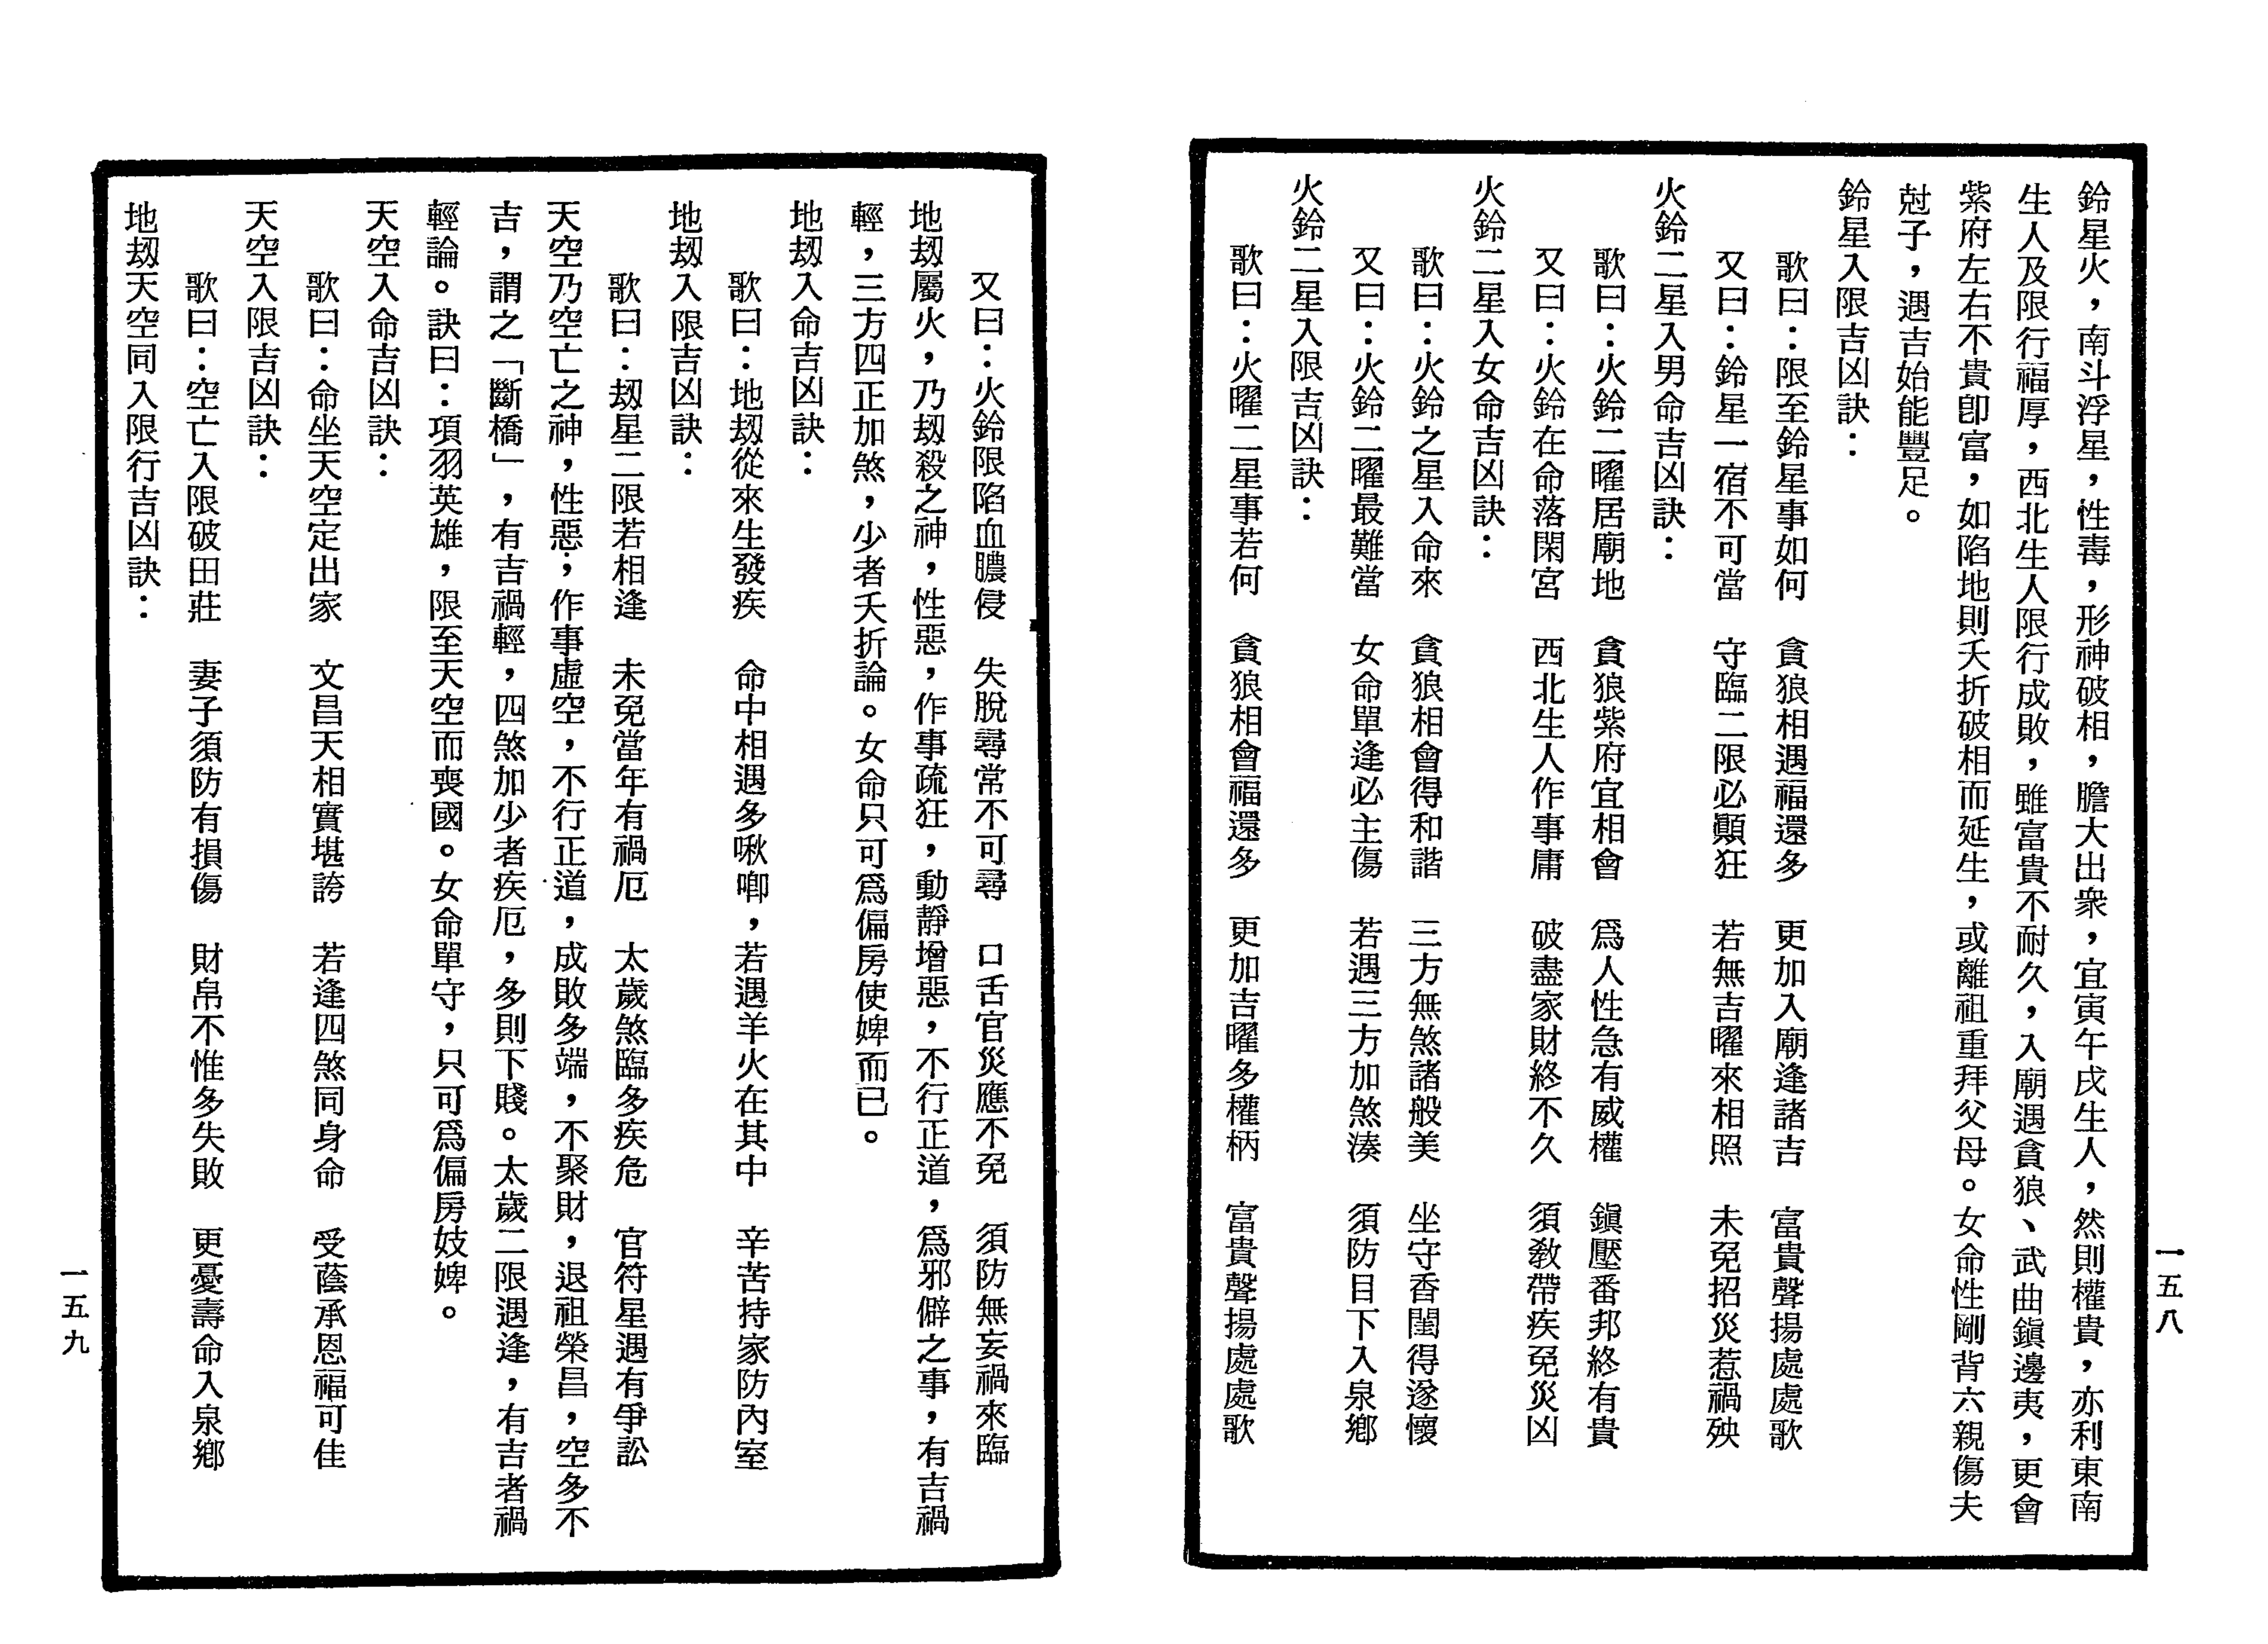 鈴星火，南斗浮星，性毒，形神破相，膽大出衆，宜寅午戌生人，然則權貴，亦利東南
生人及限行福厚，西北生人限行成敗，雖富貴不耐久，入廟遇貪狼、武曲鎭邊夷，更會
紫府左右不貴卽富，如陷地則夭折破相而延生，或離祖重拜父母。女命性剛背六親傷夫
尅子，遇吉始能豐足。
鈴星入限吉凶訣：
歌曰：限至鈴星事如何　貪狼相遇福還多　更加入廟逢諸吉　富貴聲揚處處歌
又曰：鈴星一宿不可當　守臨二限必顚狂　若無吉曜來相照　未免招災惹禍殃
火鈴二星入男命吉凶訣：
歌曰：火鈴二曜居廟地　貪狼紫府宜相會　爲人性急有威權　鎭壓番邦終有貴
又曰：火鈴在命落閑宮　西北生人作事庸　破盡家財終不久　須敎帶疾免災凶
火鈴二星入女命吉凶訣：
歌曰：火鈴之星入命來　貪狼相會得和諧　三方無煞諸般美　坐守香閨得遂懷
又曰：火鈴二曜最難當　女命單逢必主傷　若遇三方加煞湊　須防目下入泉鄉
火鈴二星入限吉凶訣：
歌曰：火曜二星事若何　貪狼相會福還多　更加吉曜多權柄　富貴聲揚處處歌
一五八
又曰：火鈴限陷血膿侵　失脫尋常不可尋　口舌官災應不免　須防無妄禍來臨
地刼屬火，乃刼殺之神，性惡，作事疏狂，動靜增惡，不行正道，爲邪僻之事，有吉禍
輕，三方四正加煞，少者夭折論。女命只可爲偏房使婢而已。
地刼入命吉凶訣：
歌曰：地刼從來生發疾　命中相遇多啾唧，若遇羊火在其中　辛苦持家防內室
地刼入限吉凶訣：
歌曰：刼星二限若相逢　未免當年有禍厄　太歲煞臨多疾危　官符星遇有爭訟
天空乃空亡之神，性惡，作事虛空，不行正道，成敗多端，不聚財，退祖榮昌，空多不
吉，謂之「斷橋」，有吉禍輕，四煞加少者疾厄，多則下賤。太歲二限遇逢，有吉者禍
輕論。訣曰：項羽英雄，限至天空而喪國。女命單守，只可爲偏房妓婢。
天空入命吉凶訣：
歌曰：命坐天空定出家　文昌天相實堪誇　若逢四煞同身命　受蔭承恩福可佳
天空入限吉凶訣：
歌曰：空亡入限破田莊　妻子須防有損傷　財帛不惟多失敗　更憂壽命入泉鄉
地刼天空同入限行吉凶訣：
一五九